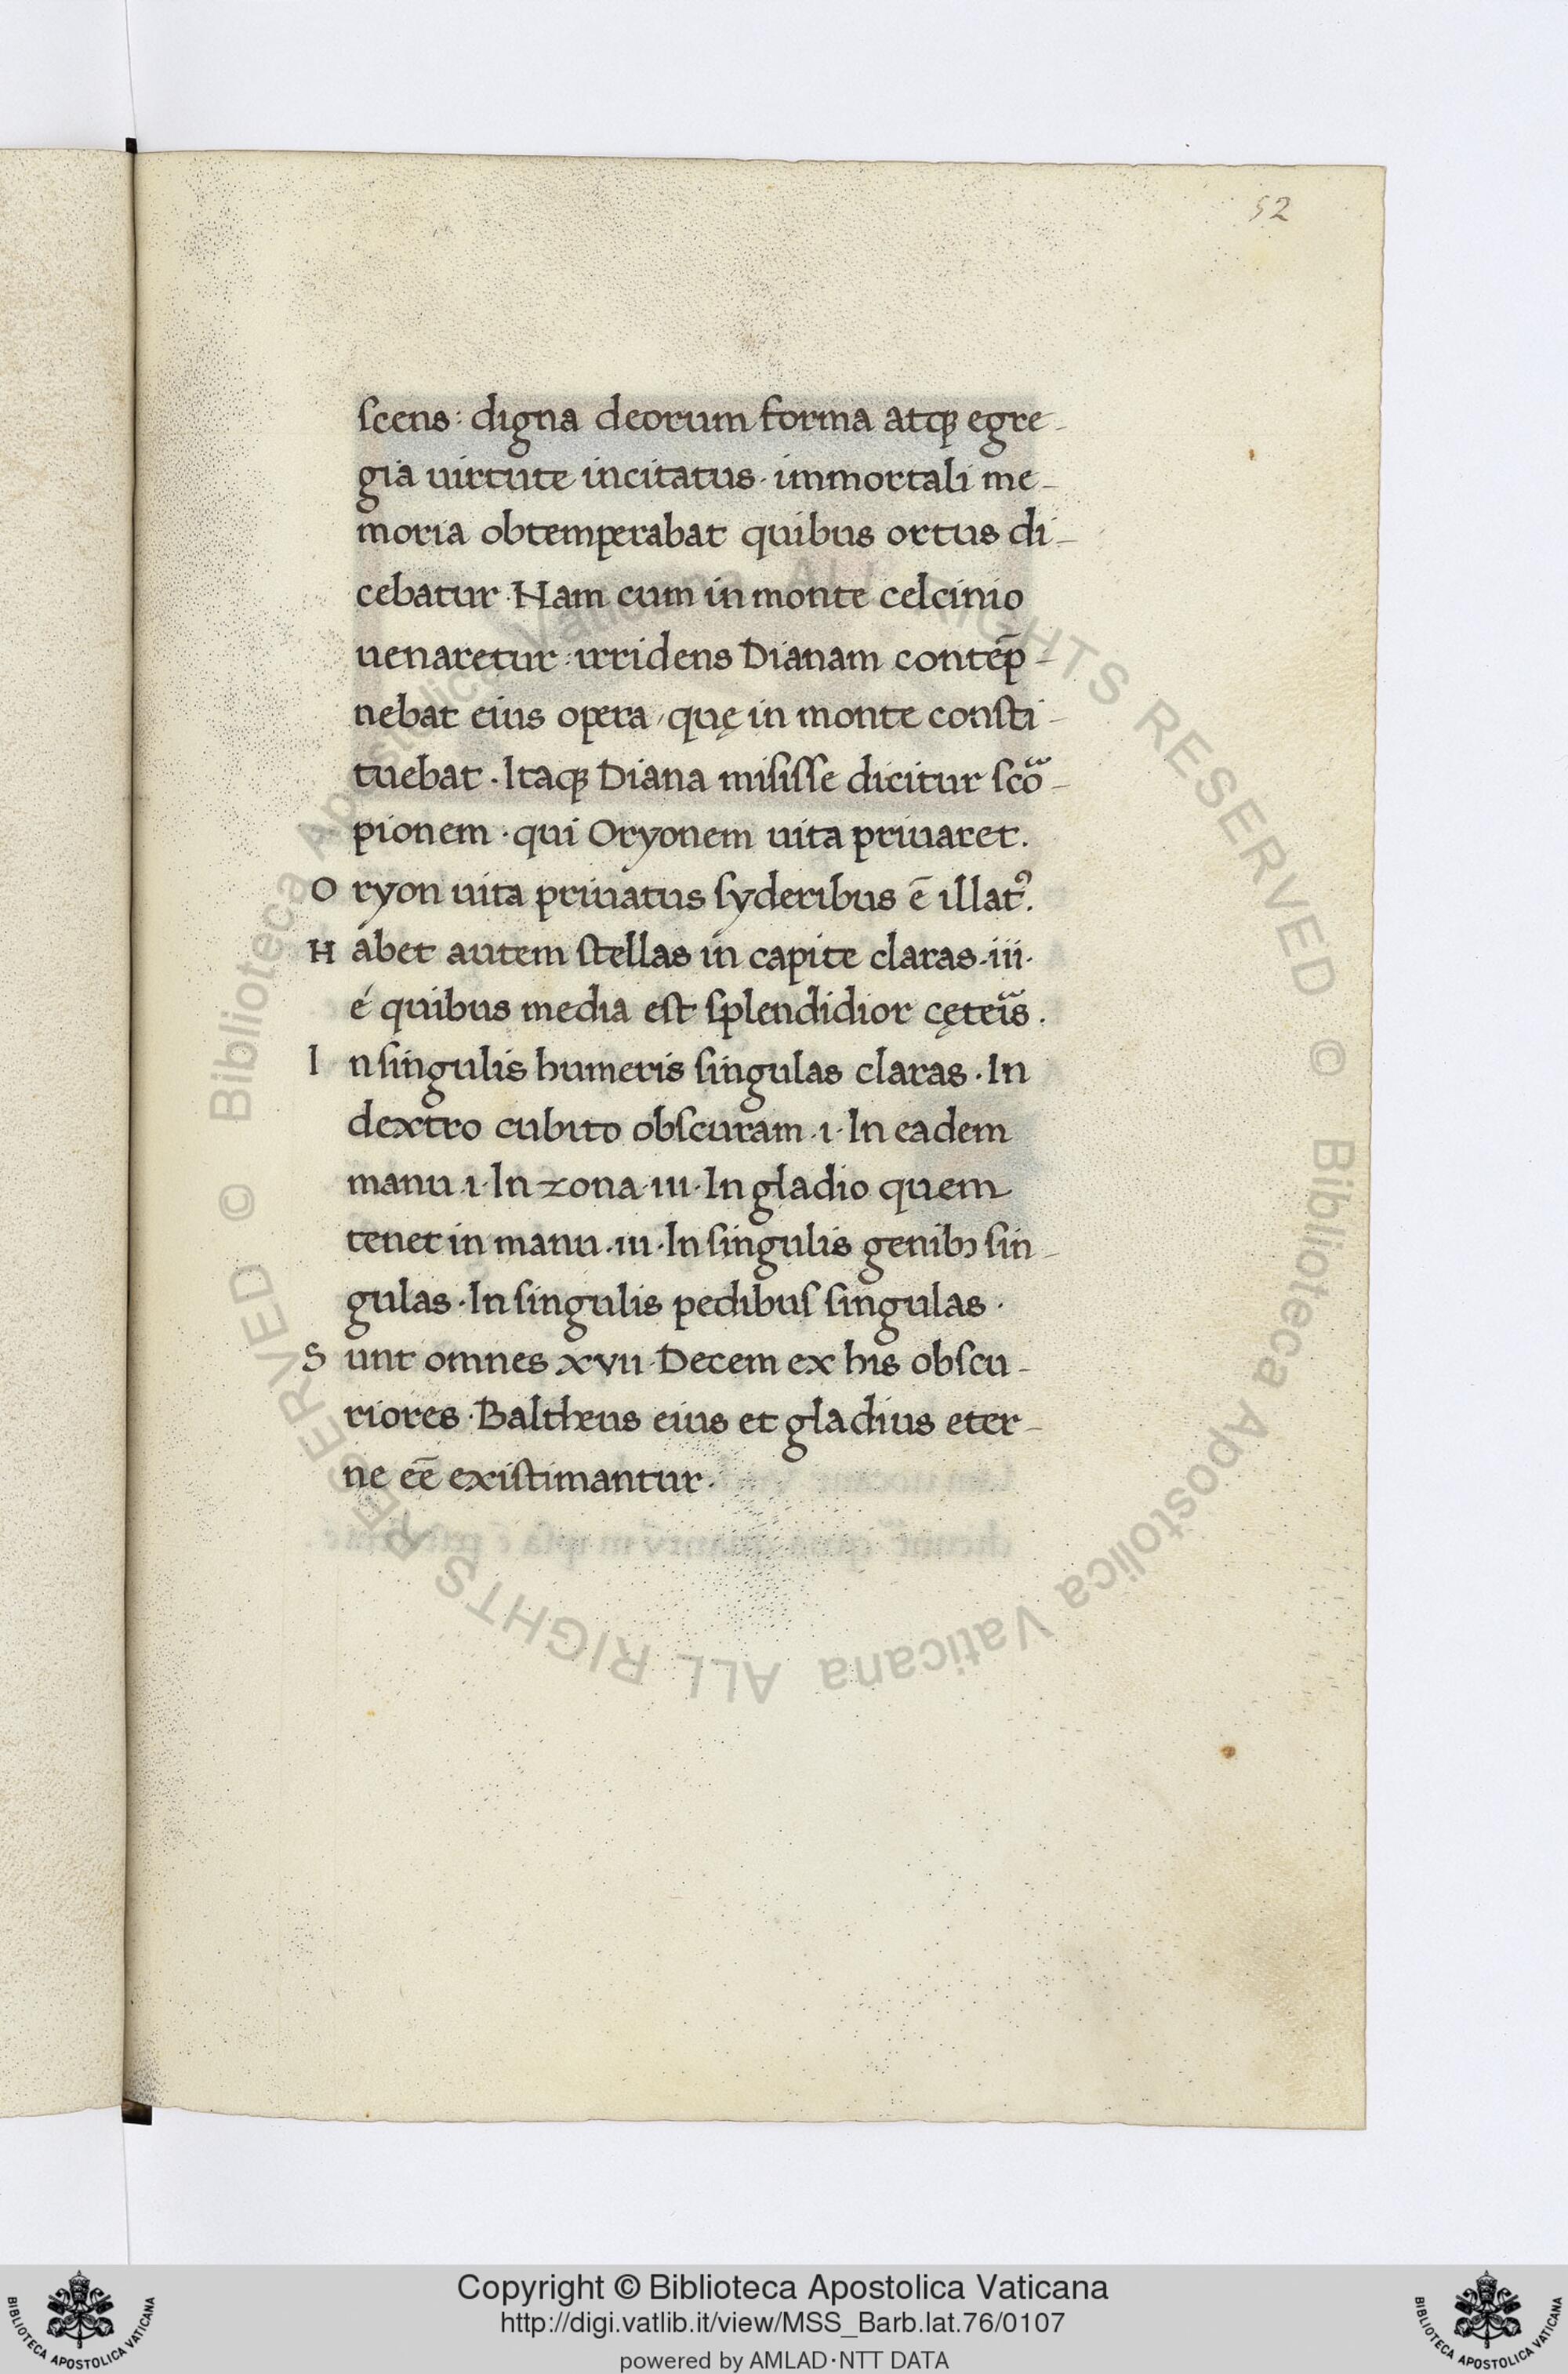 52
ſcens: digna deorum forma atqꝫ egre-
gia uirtute incitatus· immortali me-
moria obtemperabat quibus ortus di-
cebatur· Nam cum in monte celcinio
uenaretur: irridens Dianam contēp-
nebat eius opera, quę in monte conſti-
tuebat· Itaqꝫ Diana miſiſſe dicitur ſcoͣ-
pionem· qui Oryonem uita priuaret.
Oryon uita priuatus ſyderibus ē illatꝰ.
Habet autem ſtellas in capite claras·iii·
é quibus media est ſplendidior cęteiͣs.
In ſingulis humeris ſingulas claras· In
dextro cubito obſcuram·ı· In eadem
manu ı· In zona·ııı· In gladio quem
tenet in manu·ııı· In ſingulis genibꝫ ſin-
gulas· In ſingulis pedibuſ ſingulas·
Sunt omnes xvıı· Decem ex his obſcu-
riores· Baltheus eius et gladius eter-
ne eē exiſtimantur·
© Biblioteca Apostolica Vaticana ALL RIGHTS RESERVED © Biblioteca Apostolica Vaticana ALL RIGHTS RESERVED
BIBLIOTECA APOSTOLICA VATICANA
Copyright © Biblioteca Apostolica Vaticana
http://digi.vatlib.it/view/MSS_Barb.lat.76/0107
powered by AMLAD·NTT DATA
BIBLIOTECA APOSTOLICA VATICANA